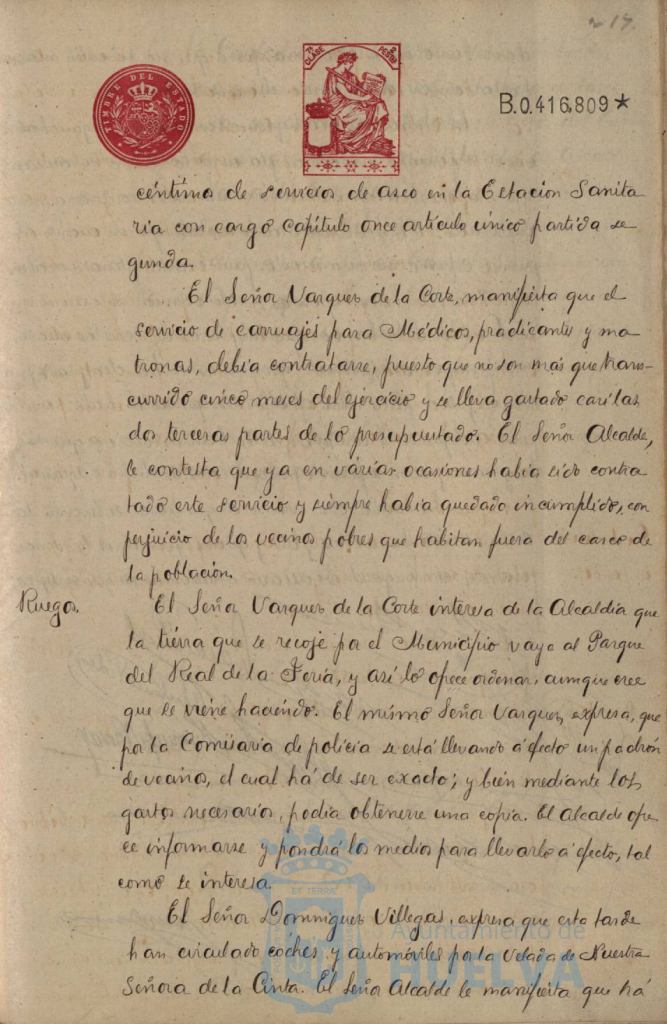 217.
TIMBRE DEL ESTADO
7ª CLASE
PESETAS
B.0.416,809*
céntimos de servicios de aseo en la Estacion Sanita
ria con cargo Capítulo once artículo único partida se
gunda.
El Señor Varques de la Corte, manifiesta que el
servicio de carruajes para Médicos, practicantes y ma
tronas, debia contratarse, puesto que no son más que trans-
currido cinco meses del ejercicio y se lleva gastado casi las
dos terceras partes de lo presupuestado. El Señor Alcalde,
le contesta que ya en várias ocasiones habia sido contra
tado este servicio y siempre habia quedado incumplido, con
perjuicio de los vecinos pobres que habitan fuera del casco de
la población.
Ruegos.
El Señor Varques de la Corte interesa de la Alcaldia que
la tierra que se recoje por el Municipio vaya al Parque
del Real de la Feria, y asi lo ofrece ordenar, aumque cree
que se viene haciendo. El mismo Señor Varques, expresa, que
por la Comisaria de policia se está llevando á efecto un padrón
de vecinos, el cual há de ser exacto; y bien mediante los
gastos necesarios, podia obtenerse una copia. El Alcalde ofre
ce informarse y pondrá los medios para llevarlo á efecto, tal
como se interesa.
El Señor Dominguez Villegas, expresa que esta tarde
han circulado coches y automóviles por la Velada de Nuestra
Señora de la Cinta. El Señor Alcalde le manifiesta que há
Ayuntamiento de
HUELVA